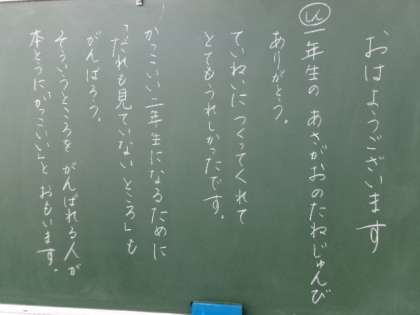 おはようございます
しん一年生の あさがおのたねじゅんび
ありがとう。
ていねいに つくってくれて
とてもうれしかったです。
かっこいい二年生になるために
「だれも見ていない ところ」も
がんばろう。
そういうところを がんばれる人が
本とうに「かっこいい」と おもいます。